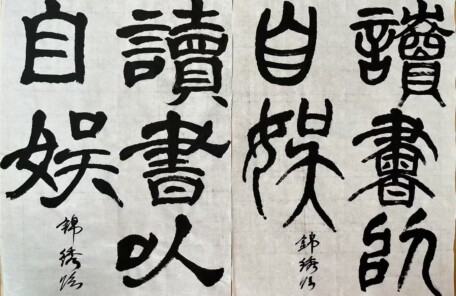 讀書以
自娛
錦綉臨
讀書以
自娛
錦綉臨